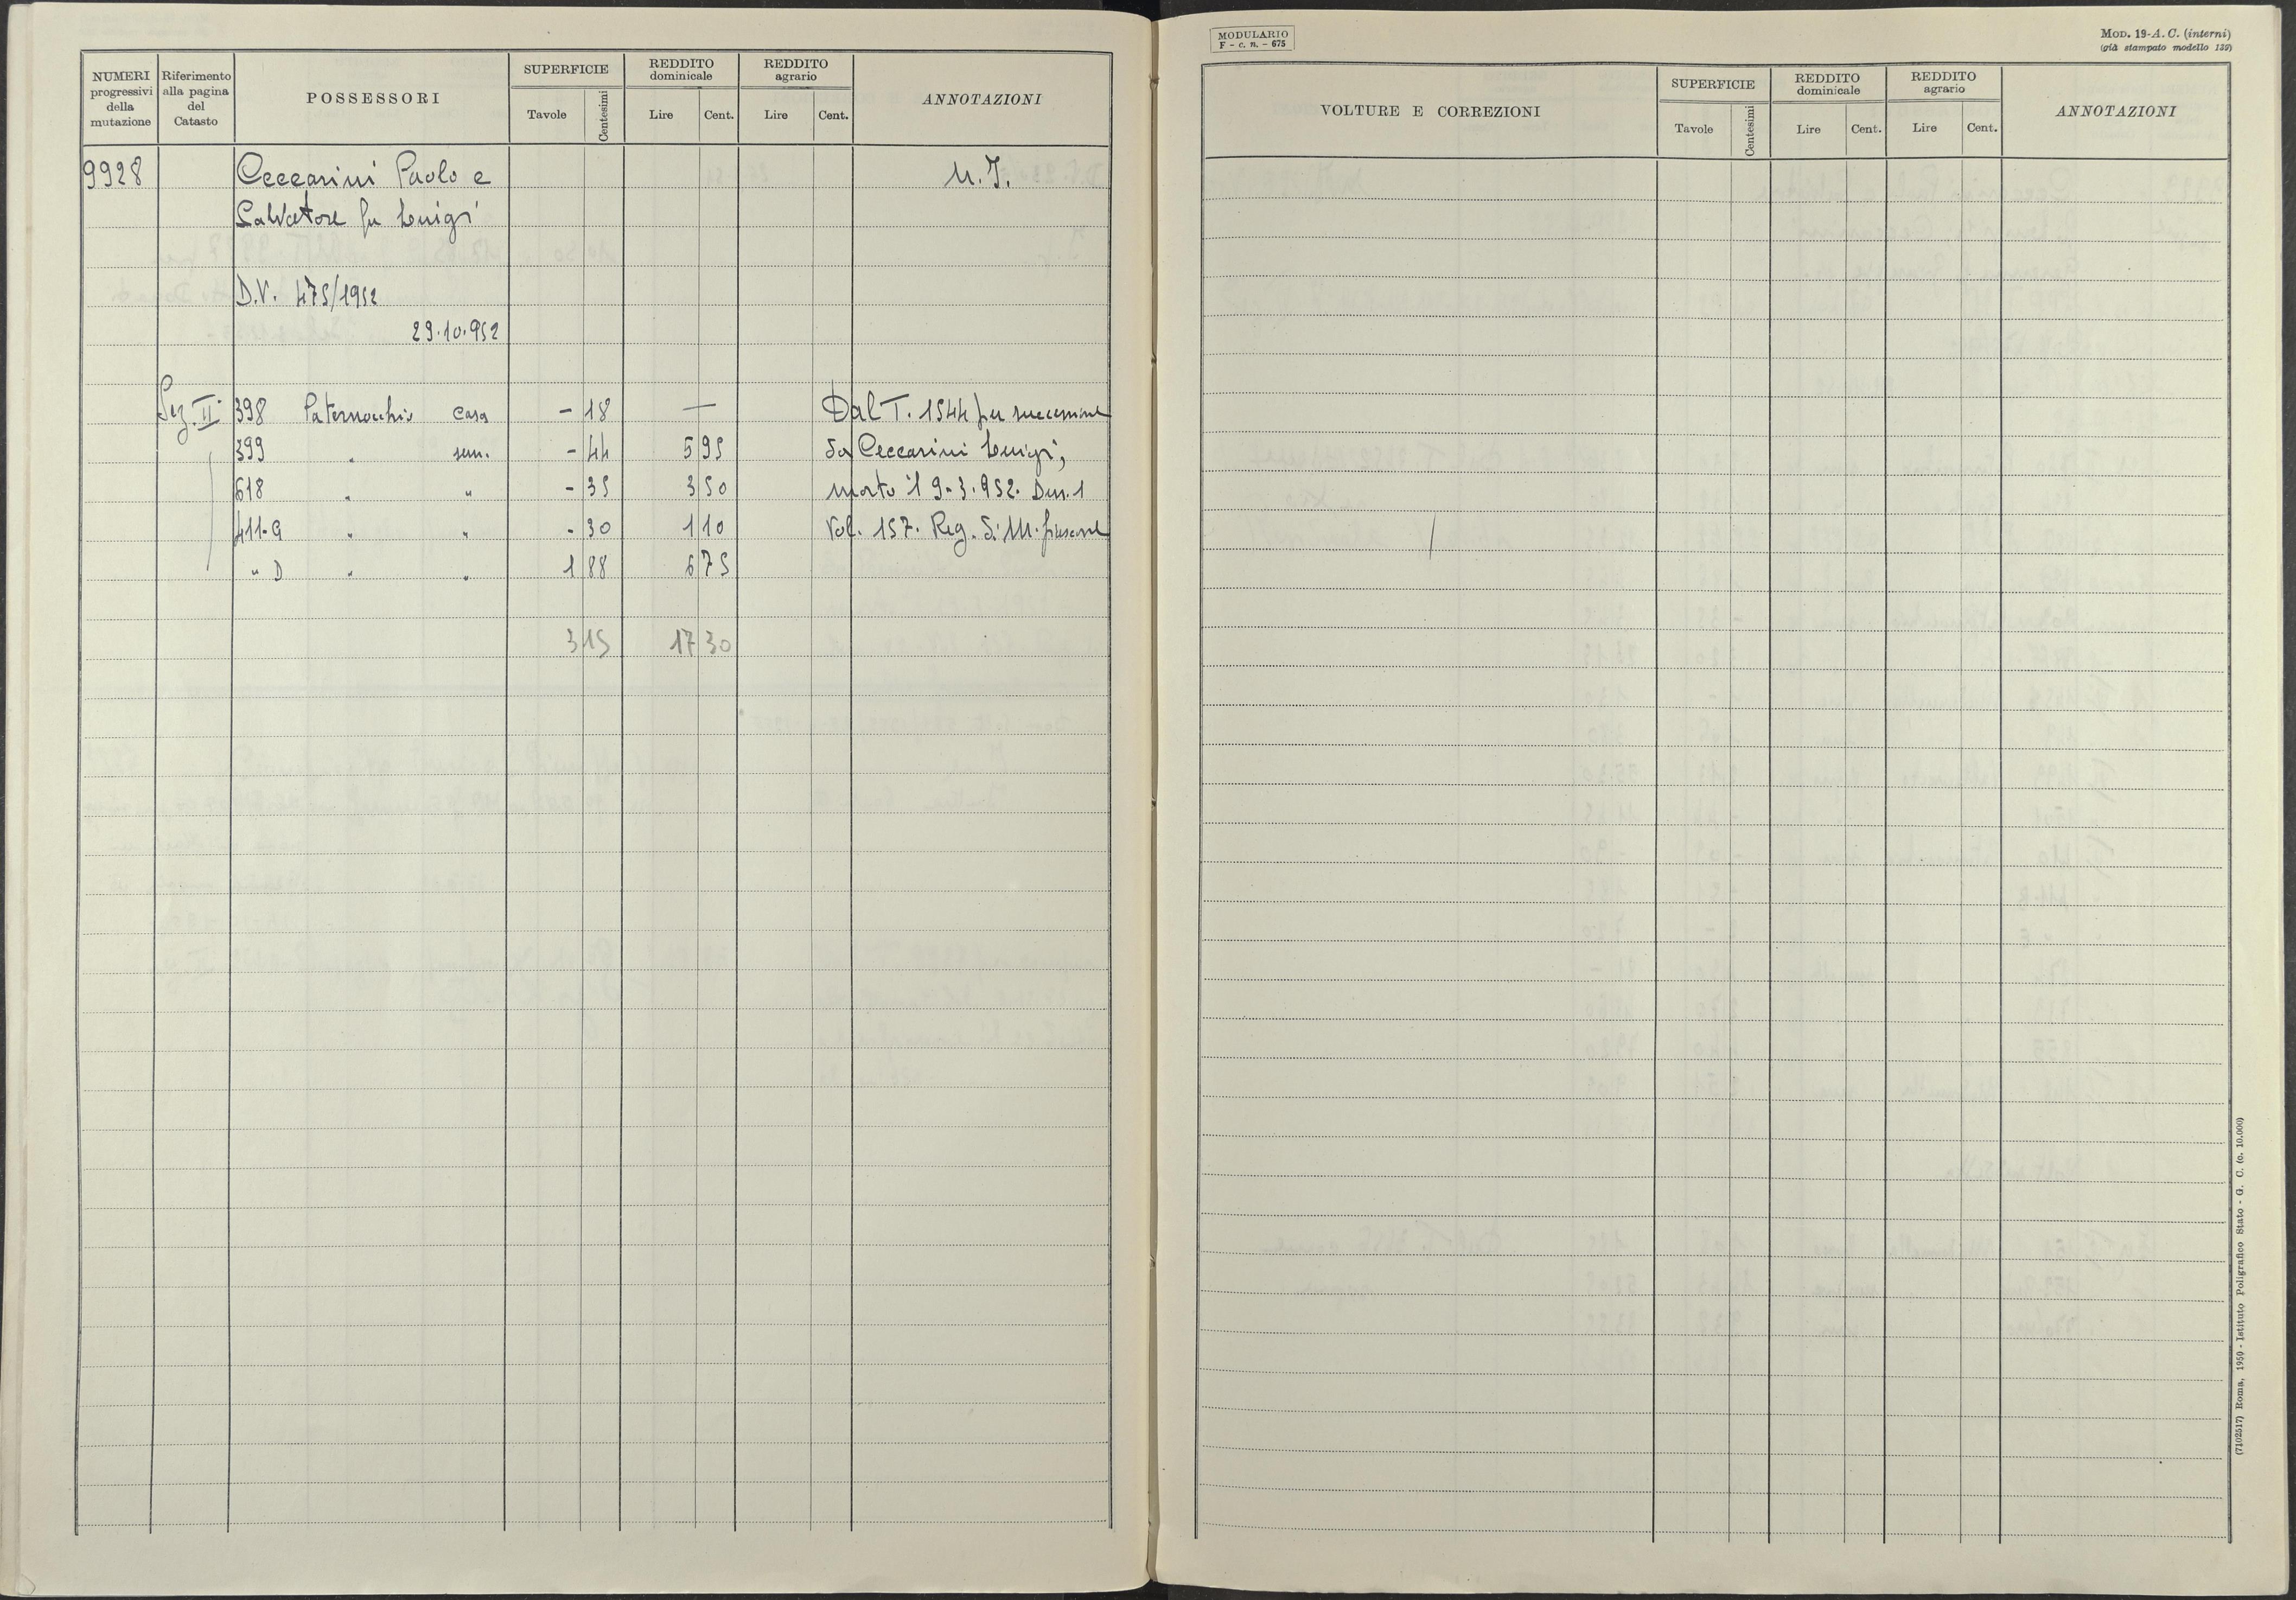 NUMERI progressivi della mutazione | Riferimento alla pagina del Catasto | POSSESSORI | SUPERFICIE Tavole Centesimi | REDDITO dominicale Lire Cent. | REDDITO agrario Lire Cent. | ANNOTAZIONI
9928 Ceccarini Paolo e M.I.
Salvatore fu Luigi
D.V. 475/1952
29.10.952
Sez. II 398 Paternocchio casa - 18 — Dal T. 1544 per successione
399 " sem. - 44 5 95 da Ceccarini Luigi,
618 " " - 35 3 50 morto il 9-3-952. Den. 1
411-a " " - 30 1 10 Vol. 157. Reg. di M.
" D " " 1 88 6 75
3 15 17 30
MODULARIO
F - c. n. - 675
MOD. 19-A. C. (interni)
(già stampato modello 139)
VOLTURE E CORREZIONI | SUPERFICIE Tavole Centesimi | REDDITO dominicale Lire Cent. | REDDITO agrario Lire Cent. | ANNOTAZIONI
(7102517) Roma, 1950 - Istituto Poligrafico Stato - G. C. (c. 10.000)